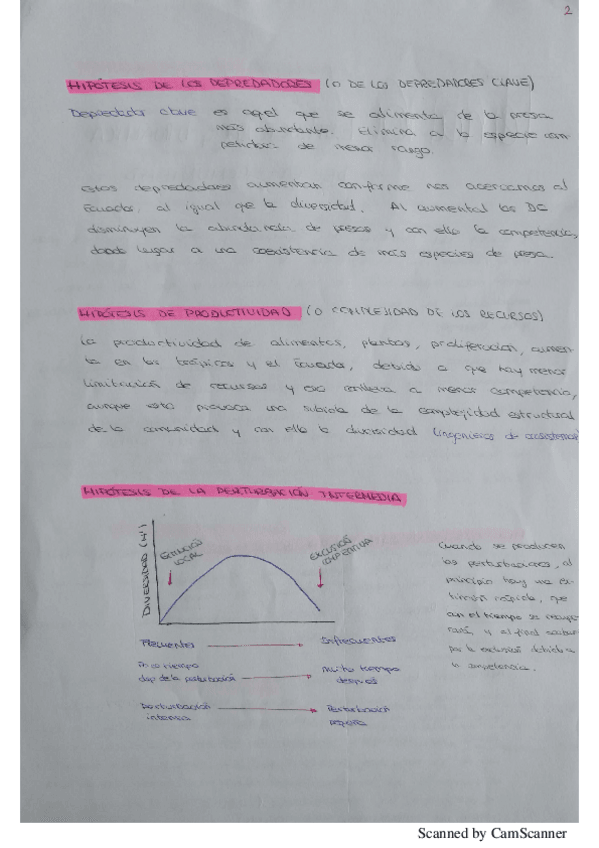 2
HIPÓTESIS DE LOS DEPREDADORES (O DE LOS DEPREDADORES CLAVE)
Depredador clave es aquel que se alimenta de la presa
más abundante. Elimina a la especie com-
petidora de menor rango.
estos depredadores aumentan conforme nos acercamos al
Ecuador, al igual que la diversidad. Al aumentar los DC
disminuyen la abundancia de presas y con ello la competencia,
dando lugar a una coexistencia de más especies de presa.
HIPÓTESIS DE PRODUCTIVIDAD (O COMPLEJIDAD DE LOS RECURSOS)
La productividad de alimentos, plantas, proliferación, aumen-
ta en los trópicos y el Ecuador, debido a que hay menor
limitación de recursos y eso conlleva a menor competencia,
aunque esto provoca una subida de la complejidad estructural
de la comunidad y con ello la diversidad (ingenieros de ecosistemas
HIPÓTESIS DE LA PERTURBACIÓN INTERMEDIA
DIVERSIDAD (H')
EXTINCIÓN LOCAL
EXCLUSIÓN COMPETITIVA
Frecuentes Infrecuentes
Poco tiempo mucho tiempo
desp de la perturbación después
Perturbación Perturbación
intensa pequeña
Cuando se producen
las perturbaciones, al
principio hay una ex-
tinción rápida, que
con el tiempo se recupe-
rará, y al final
por la exclusión debido a
la competencia.
Scanned by CamScanner